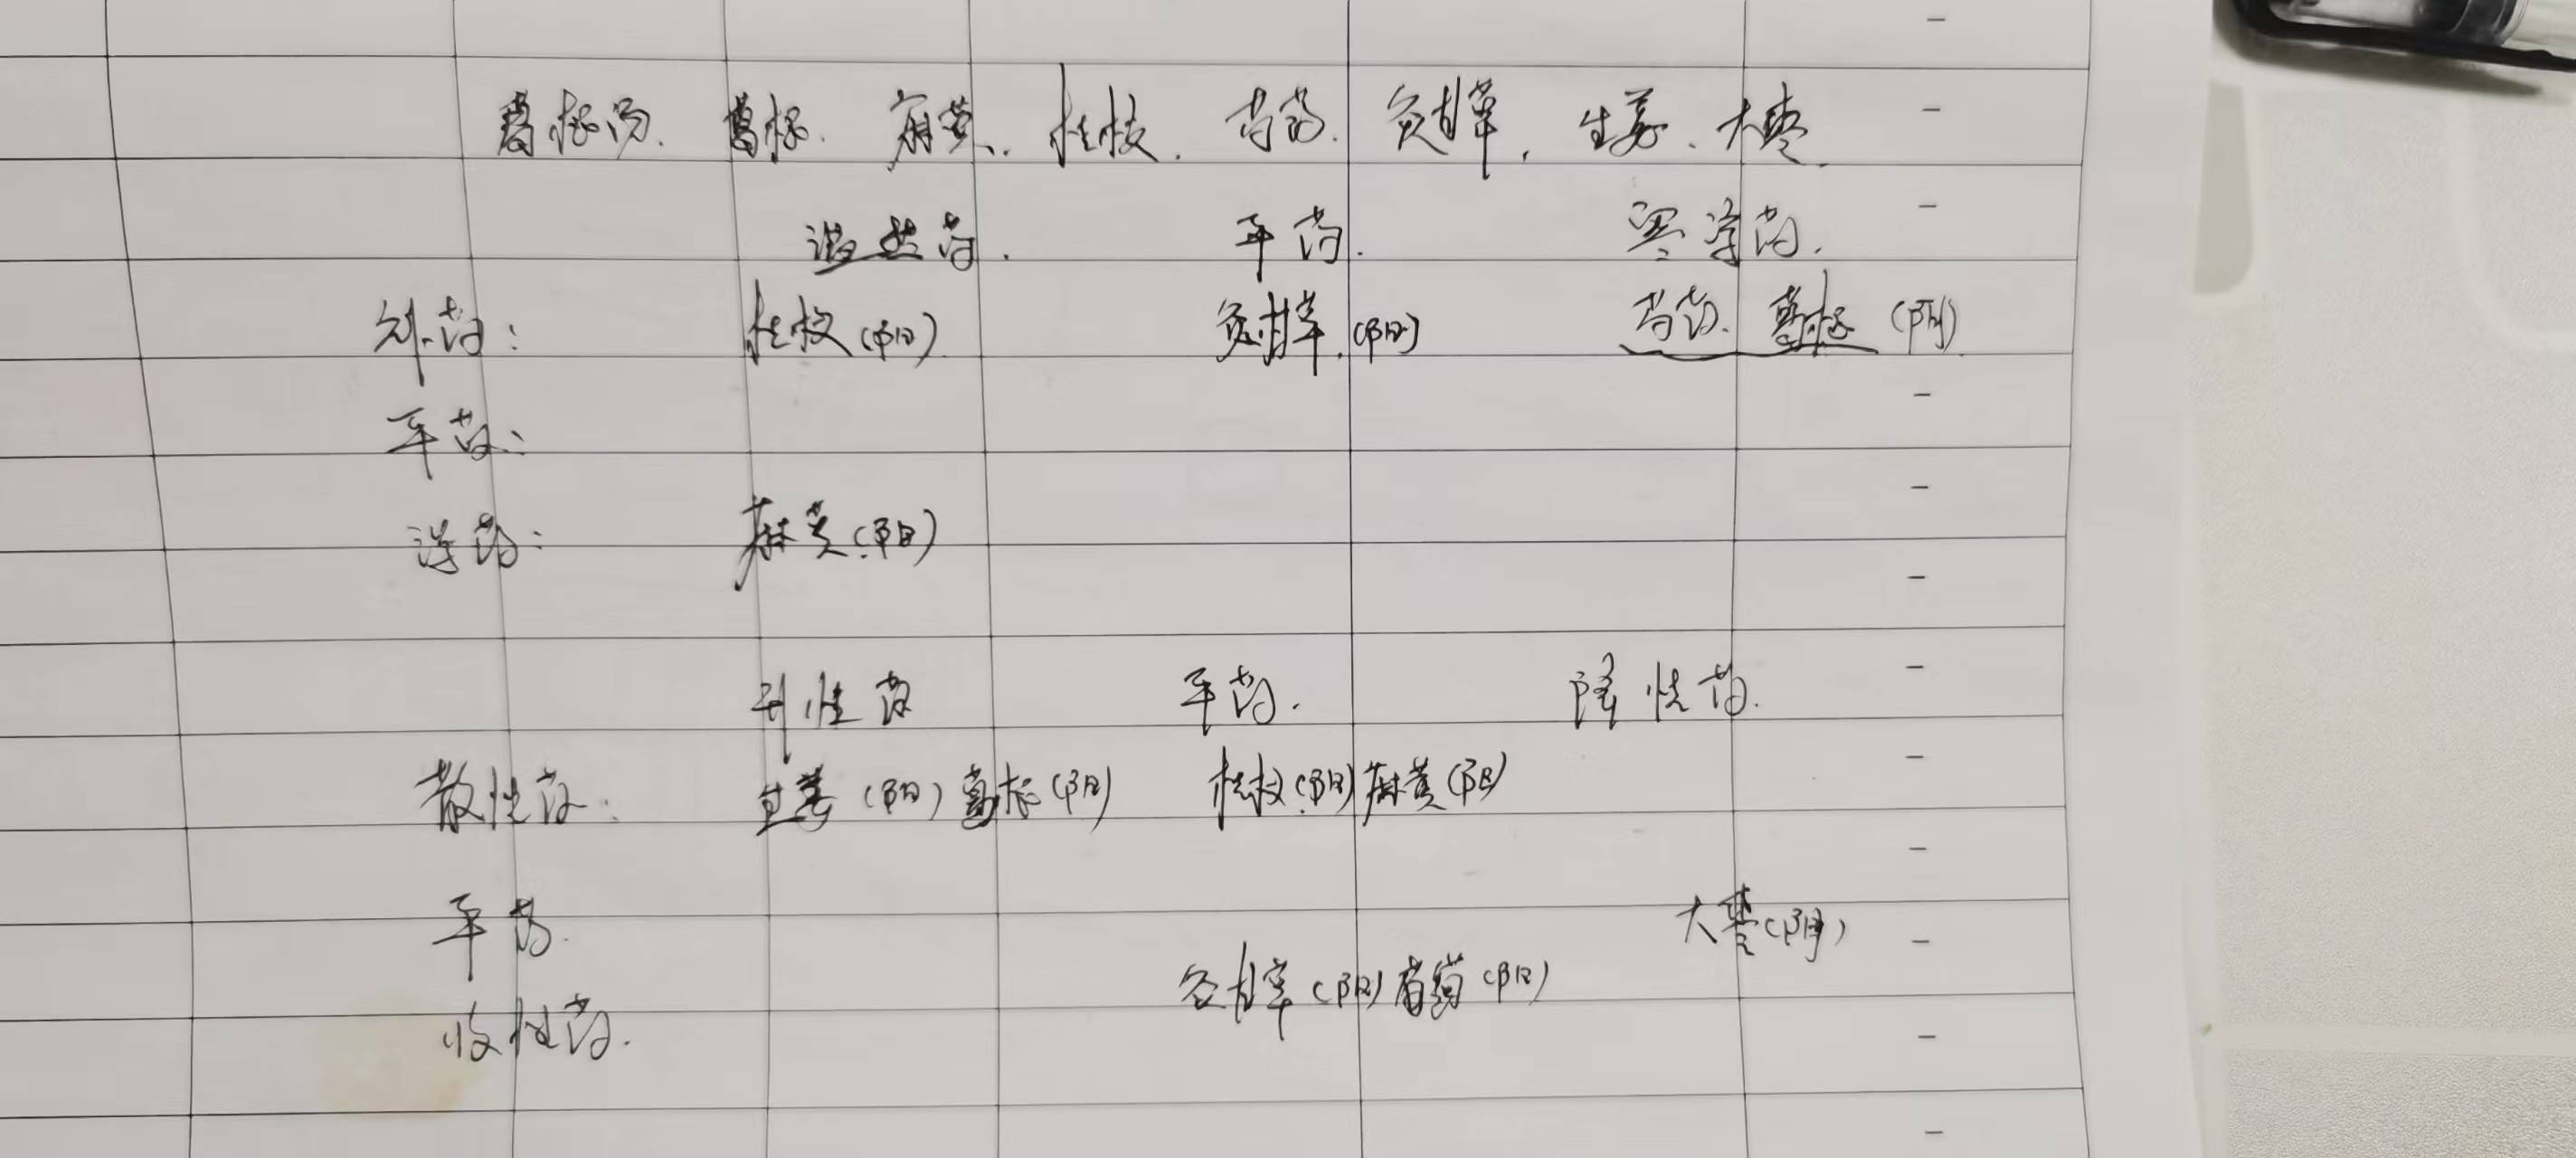 葛根汤. 葛根. 麻黄. 桂枝. 芍药. 炙甘草. 生姜. 大枣.
温热药. 平药. 寒凉药.
补药: 桂枝(阳) 炙甘草.(阳) 芍药. 葛根(阴)
平药:
泻药: 麻黄(阳)
升性药 平药. 降性药.
散性药: 生姜(阳) 葛根(阳) 桂枝(阳) 麻黄(阳)
平药. 大枣(阴)
炙甘草(阳) 芍药(阳)
收性药.